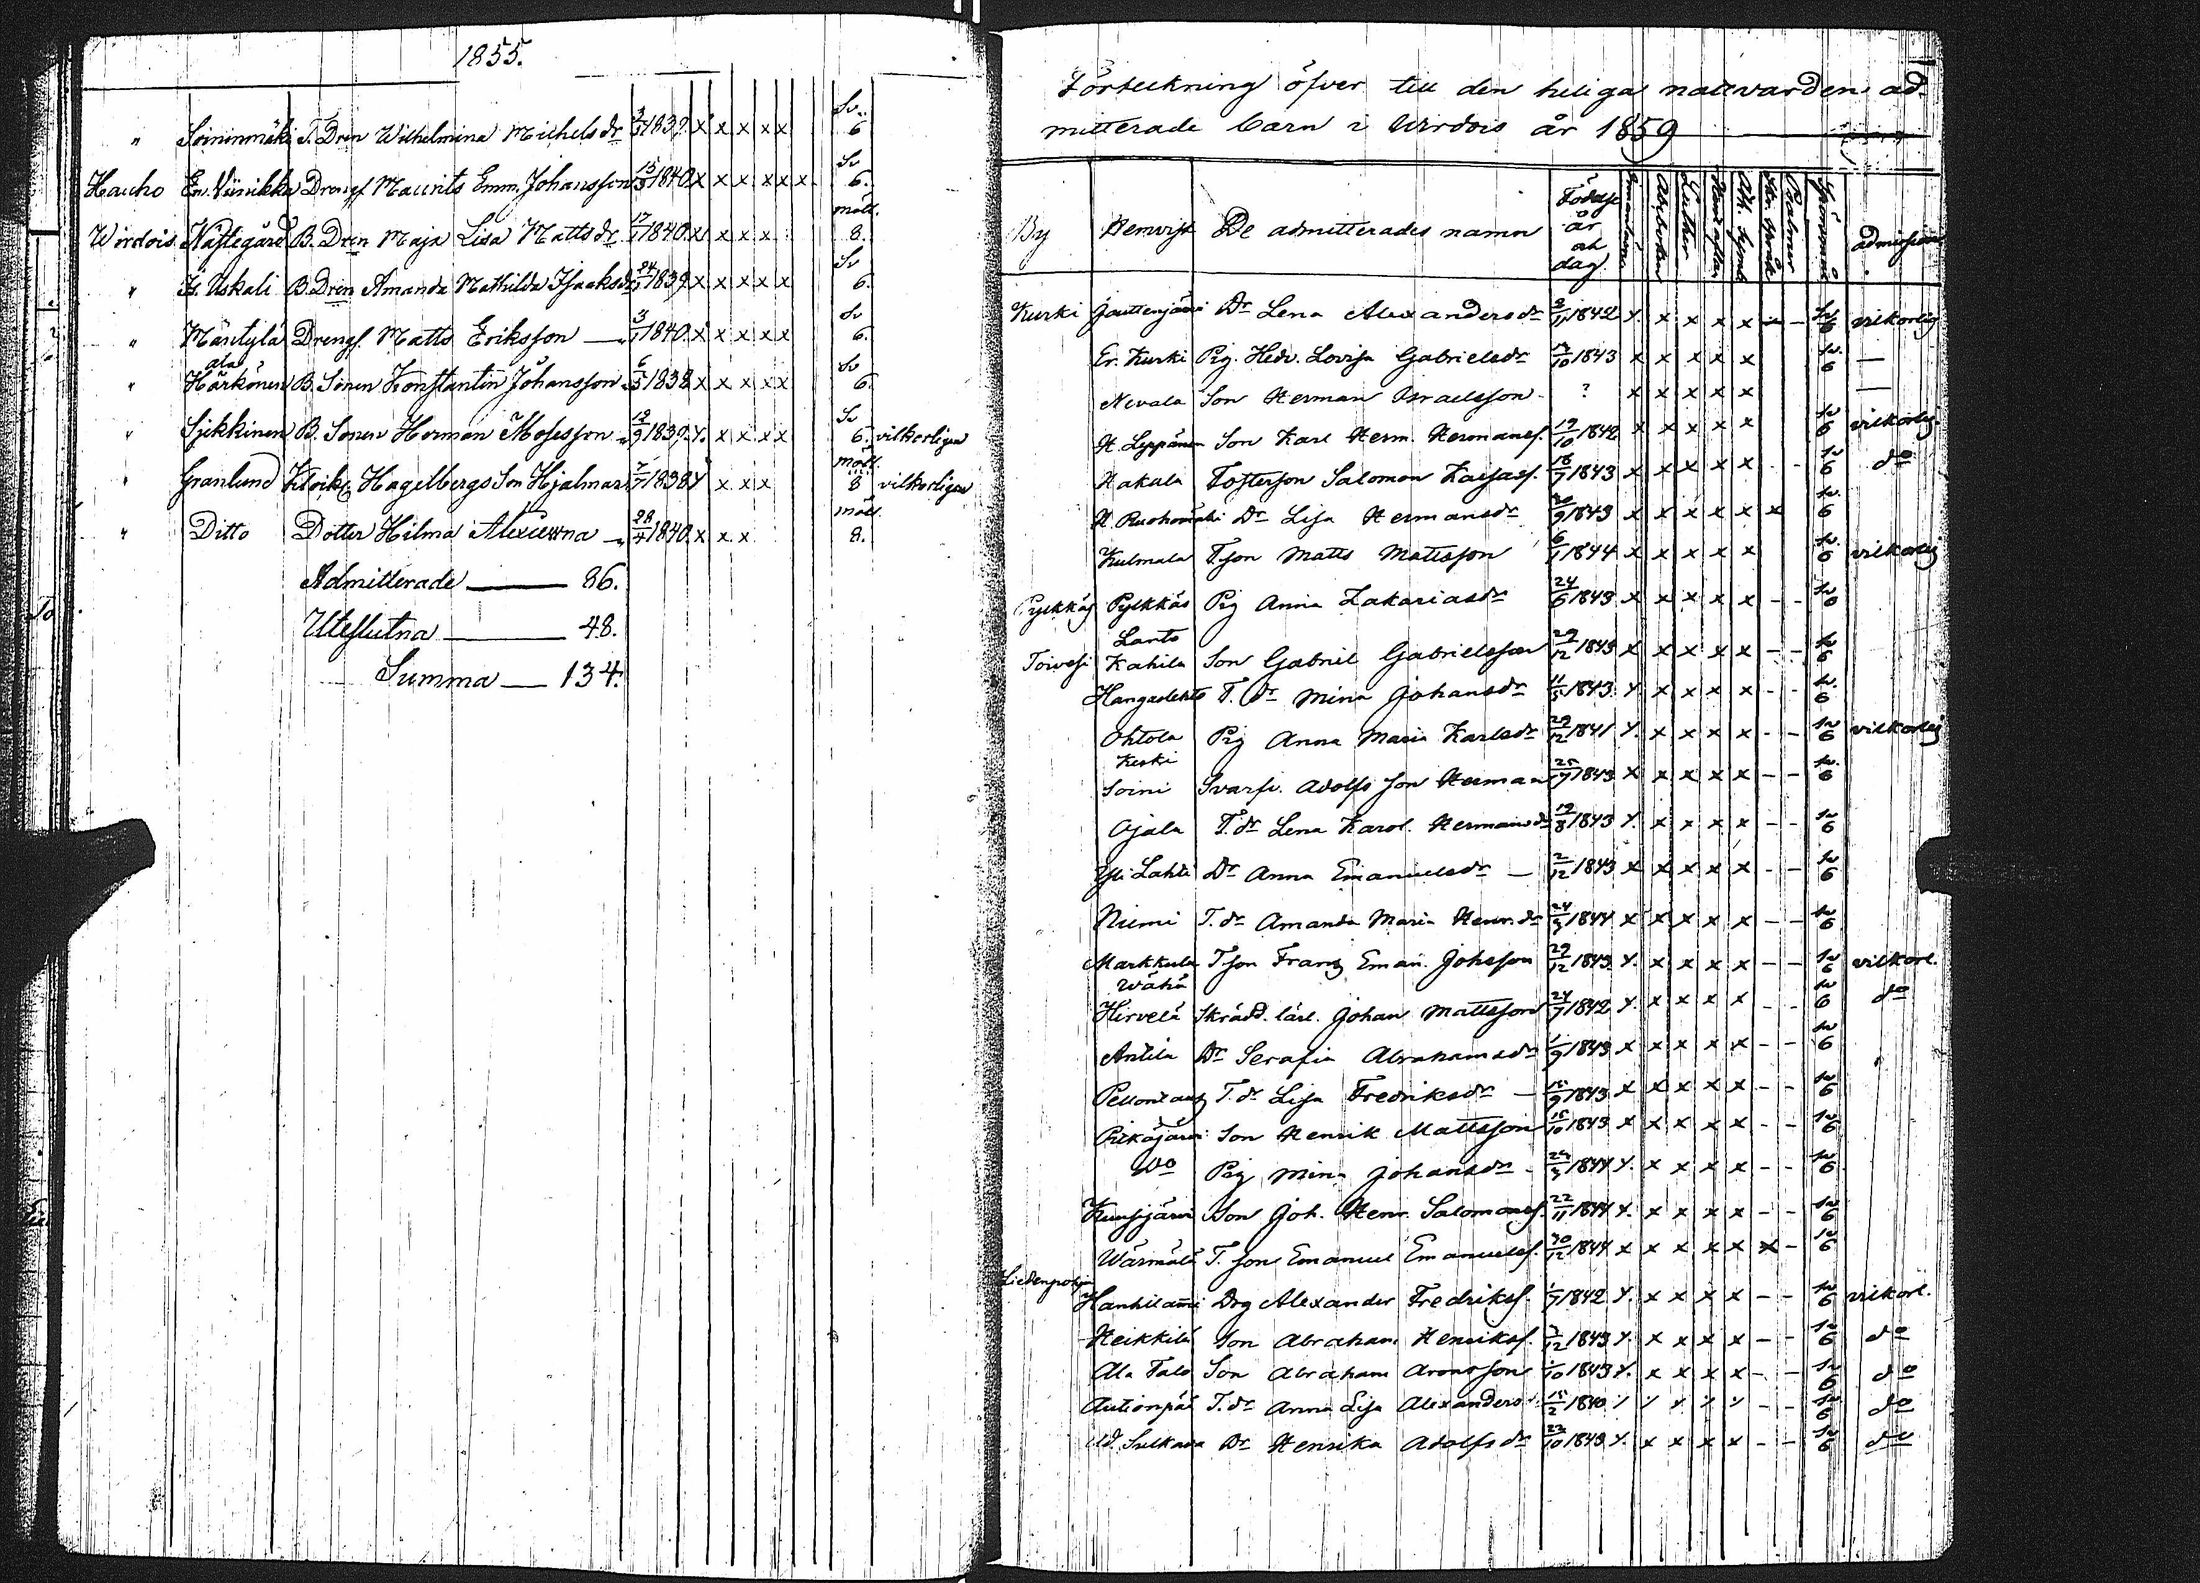 1855.
" Soininmäki T. Dren Wilhelmina Michelsdr 1839 x x x x x Sv. 6
Hauho En. Viinikka Drengs Maurits Emm. Johansson 15/3 1840 x x x x x x Sv 6.
Wirdois Nästegård B. Dren Maja Lisa Mattsdr 17/1 1840 x x x x mått. 8.
" Is. Uskali B. Dren Amanda Mathilda Isaaksdr 24/1 1839 x x x x x Sv 6.
" Mäntylä Drengs Matts Eriksson — 3/1 1840 x x x x x Sv 6.
ala
" Härkönen B. Sonen Konstantin Johansson 6/5 1838 x x x x x Sv 6.
" Sjekkinen B. Sonen Herman Mosesson 12/9 1839 x x x x x Sv 6. vilkorligen
" Granlund Klock. Hagelbergs Son Hjalmar 7/7 1838 x x x x mått. 8 vilkorligen
" Ditto Dotter Hilma 28/4 1840 x x x mått. 8.
Admitterade — 86.
Uteslutna — 48.
Summa — 134.
Förteckning öfver till den heliga nattvarden ad-
mitterade barn i Wirdois år 1859
By Hemvist De admitterades namn Födelse år och dag Luther admission
Kurki Jauttenjärvi Dr Lena Alexandersdr 2/11 1842 x x x x x x - Sv 6 vilkorlig
Er. Kurki Pig. Hedv. Lovisa Gabrielsdr 1843 x x x x x Sv. 6 —
Nevala Son Herman Israelsson - ? x x x x x —
H. Leppänen Son Karl Herm. Hermanss. 19/10 1842 x x x x x Sv 6 vilkorlig.
Hakala Fosterson Salomon 18/7 1843 x x x x x - Sv 6 do
H. Ruohomäki Dr Lisa Hermansdr 30/9 1843 x x x x x x Sv. 6
Kulmala T. son Matts Mattsson 6/1 1844 x x x x x Sv. 6 vilkorlig
Pylkkäs Pylkkäs Pig Anna Zakariasdr 24/6 1843 x x x x x - - Sv 6
Lanto
Toivesi Kahila Son Gabriel Gabrielsson 29/12 1843 x x x x x - - Sv 6
Hangaslehto T. Dr Mina Johansdr 11/5 1843 x x x x x - - Sv. 6
Ohtola Pig Anna Maria Karlsdr 29/12 1841 x x x x x - - Sv 6 vilkorlig
Keski
Soini Svarfv. Adolfs son Herman 25/9 1843 x x x x x - - Sv. 6
Ojala T. dr Lena Karol. Hermansdr 19/8 1843 x x x x x - - Sv 6
Yli Lahti Dr Anna Emanuelsdr — 2/12 1843 x x x x x - - Sv 6
Niemi T. dr Amanda Maria Henr. dr 24/3 1844 x x x x x - - Sv 6
Markkula T son Franz Eman. Johsson 29/12 1843 x x x x x - - Sv 6 vilkorl.
Wähä
Hirvelä Skrädd. lärl. Johan Mattsson 24/7 1842 x x x x x - - Sv 6 do
Antila Dr Serafia Abrahamsdr 1/9 1843 x x x x x - - Sv 6
T. dr Lisa Fredriksdr — 15/9 1843 x x x x x - - Sv 6
Pitkäjärvi Son Henrik Mattsson 15/10 1843 x x x x x - - Sv 6
Do Pig Mina Johansdr - 24/3 1844 x x x x x - - Sv 6
Kuusijärvi Son Joh. Henr. Salomonss. 22/11 1844 x x x x x - - Sv 6
Wärmälä T. son Emanuel Emanuelss. 30/12 1844 x x x x x x - Sv 6
Liedenpohja
Hanhilammi Drg Alexander Fredrikss. 1/7 1842 x x x x x - - Sv 6 vilkorl.
Heikkilä Son Abraham Henrikss. 3/12 1843 x x x x x - - Sv 6 do
Ala Talo Son Abraham Aronsson 1843 x x x x x - - Sv 6 do
Autionpää T. dr Anna Lisa Alexandersd. 15/2 1840 x x x x x - - Sv 6 do
Ad. Sulkava Dr Henrika Adolfsdr 22/10 1843 x x x x x - - Sv 6 do